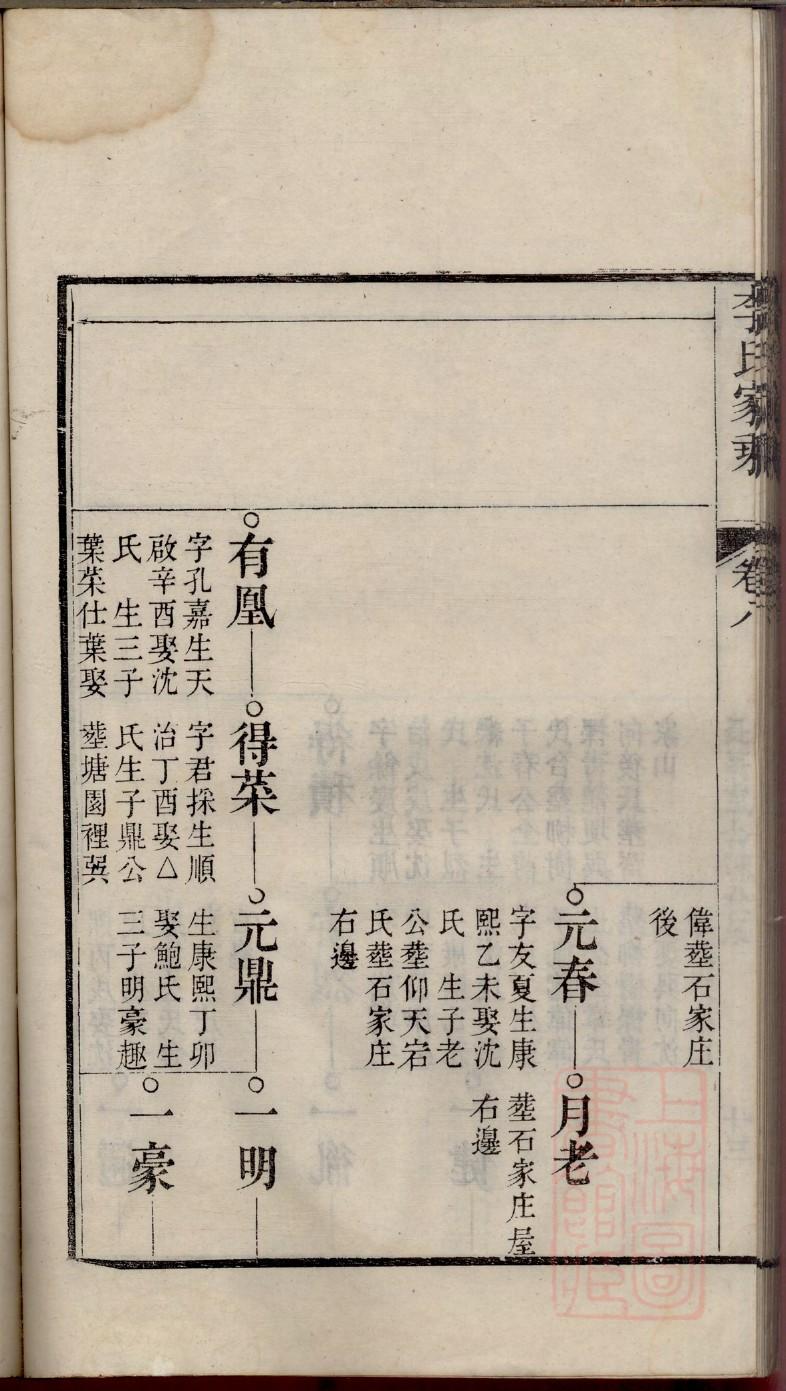 氏家乘
卷六
偉塟石家庄
後
元春
字友夏生康
熙乙未娶沈
氏　生子老
公塟仰天宕
氏塟石家庄
右邊
月老
塟石家庄屋
右邊
有凰
字孔嘉生天
啟辛酉娶沈
氏　生三子
葉菜仕葉娶
得菜
字君採生順
治丁酉娶△
氏生子鼎公
塟塘園裡巽
元鼎
生康熙丁卯
娶鮑氏　生
三子明豪趣
一明
一豪